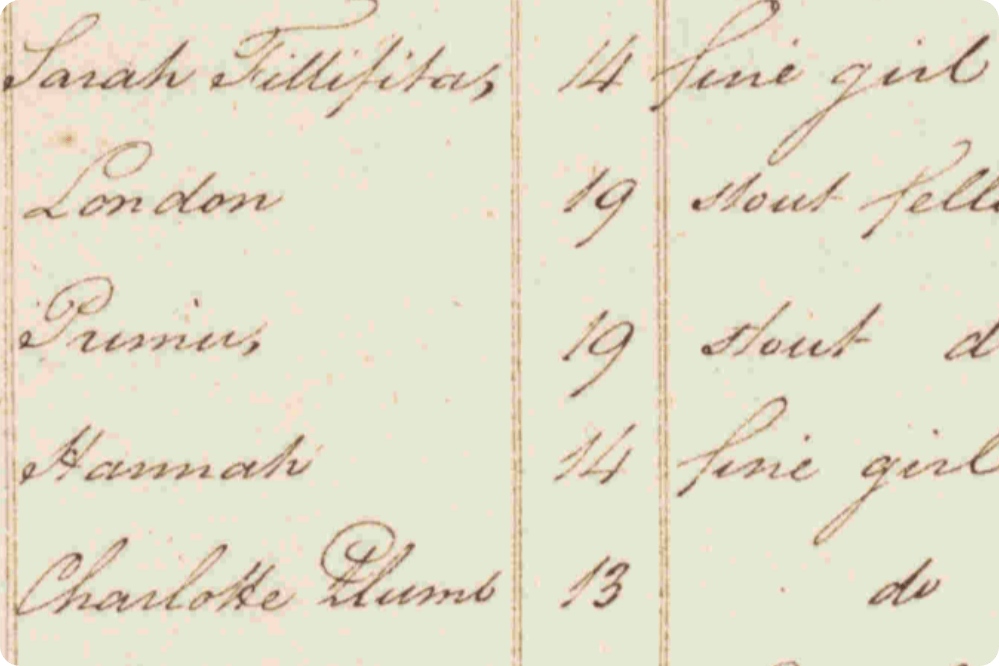 Sarah Fillifitas, 14 fine girl
London 19 stout fell
Primus 19 stout d
Hannah 14 fine girl
Charlotte Plumb 13 do